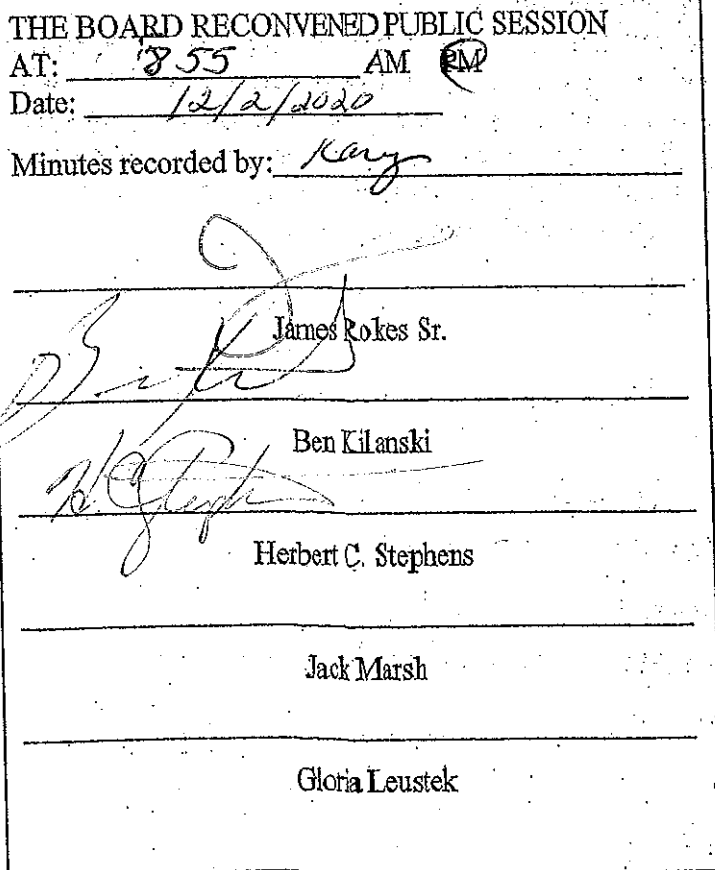 THE BOARD RECONVENED PUBLIC SESSION
AT: 855 AM PM
Date: 12/2/2020
Minutes recorded by:
James Rokes Sr.
Ben Kilanski
Herbert C. Stephens
Jack Marsh
Gloria Leustek